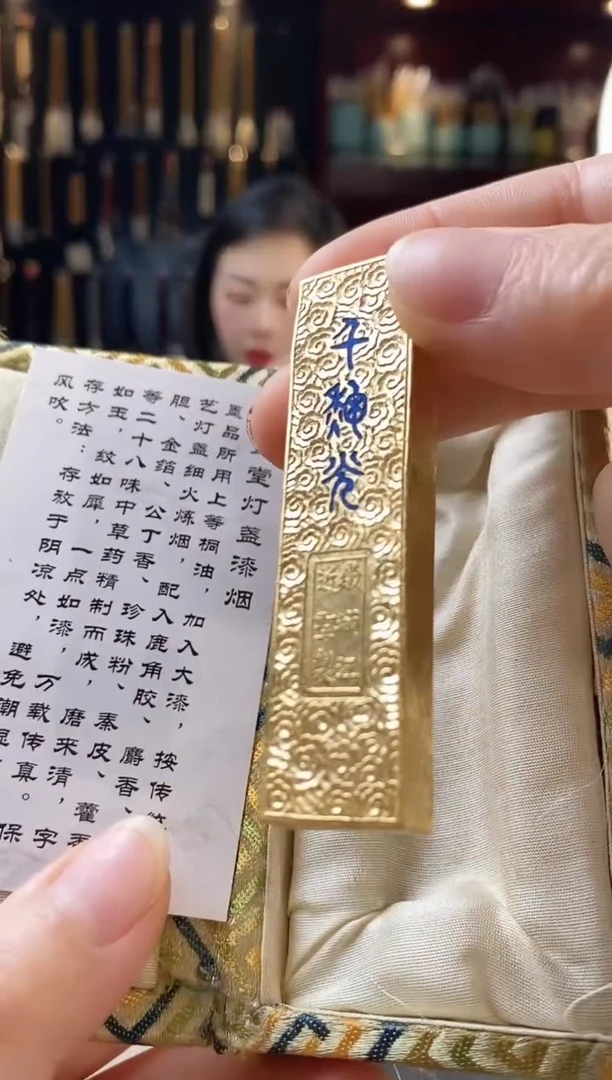 千
光
堂灯盏漆烟
墨品所用上等桐油，加入大漆，按传统
艺灯盏细火炼烟，配入鹿角胶、麝香、
胆、金箔、公丁香、珍珠粉、秦皮、藿香
等二十八味中草药精制而成，磨来清，字
如玉，纹如犀，一点如漆，万载传真。保
存方法：存放于阴凉处，避免潮湿
风吹。